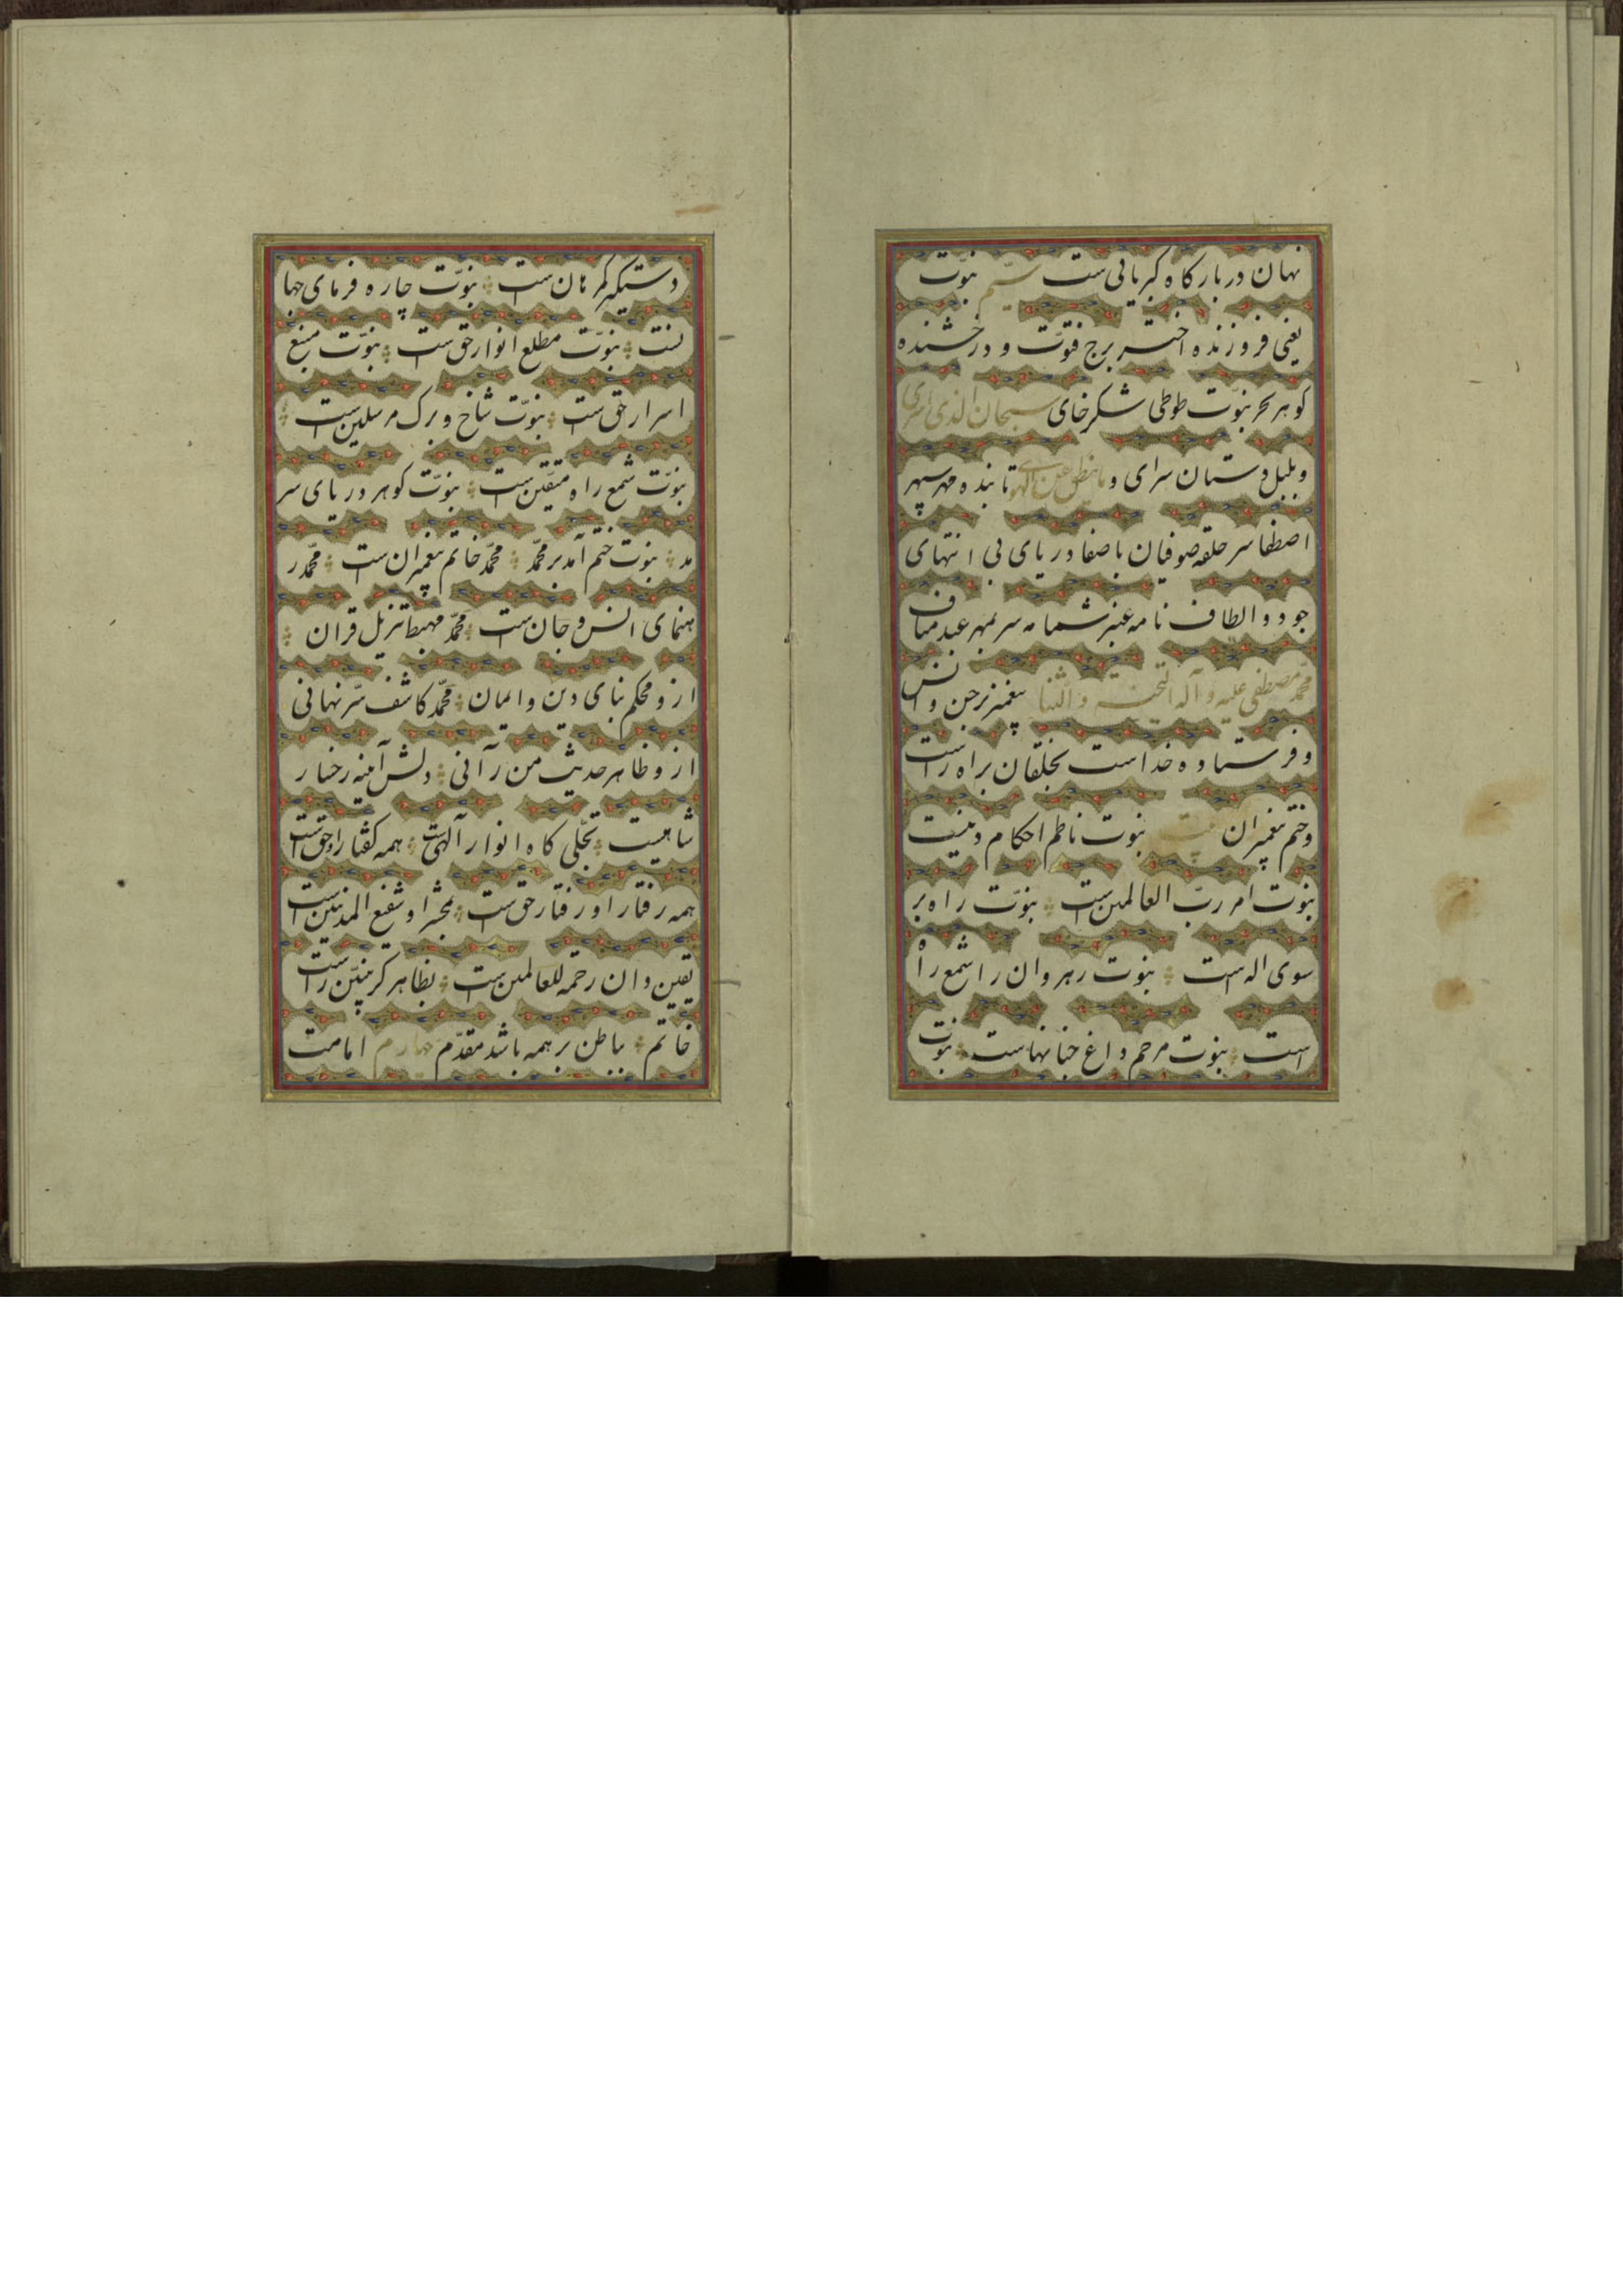 نهان در بارگاه کبریائی است سیّم نبوّت
یعنی فروزنده اختر برج فتوّت و درخشنده
گوهر بحر نبوّت طوطی شکرخای سبحان الذی اسری
و بلبل دستان سرای و ما ینطق عن الهوی تابنده مهر سپهر
اصطفا سر حلقه صوفیان باصفا دریای بی انتهای
جود و الطاف نامه عنبر شمامه سر بمهر عبد مناف
محمّد مصطفی علیه و آله التحیه و الثنا پیغمبر جن و انس
و فرستاده خداست بخلقان براه راست
و ختم پیغمبران نبوت ناظم احکام دینست
نبوت امر ربّ العالمین است نبوّت راه بر
سوی اله است نبوت رهروان را شمع راه
است نبوت مرحم داغ جنانهاست نبوت
دستگیر گمرهان است نبوّت چاره فرمای جها
نست نبوّت مطلع انوار حق است نبوّت منبع
اسرار حق است نبوّت شاخ و برگ مرسلین است
نبوّت شمع راه متقین است نبوّت گوهر دریای سر
مد نبوت ختم آمد بر محمّد محمّد خاتم پیغمبران است محمّد ر
هنمای انس و جان است محمّد مهبط تنزیل قران
ازو محکم بنای دین و ایمان محمّد کاشف سرّ نهانی
ازو ظاهر حدیث من رآنی دلش آینه رخسار
شاهیست تجلّی گاه انوار آلهی است همه گفتار او حق است
همه رفتار او رفتار حق است بمحشر او شفیع المذنبین است
یقین دان رحمة للعالمین است بظاهر گر پسین راست
خاتم بباطن بر همه باشد مقدّم چهارم امامت